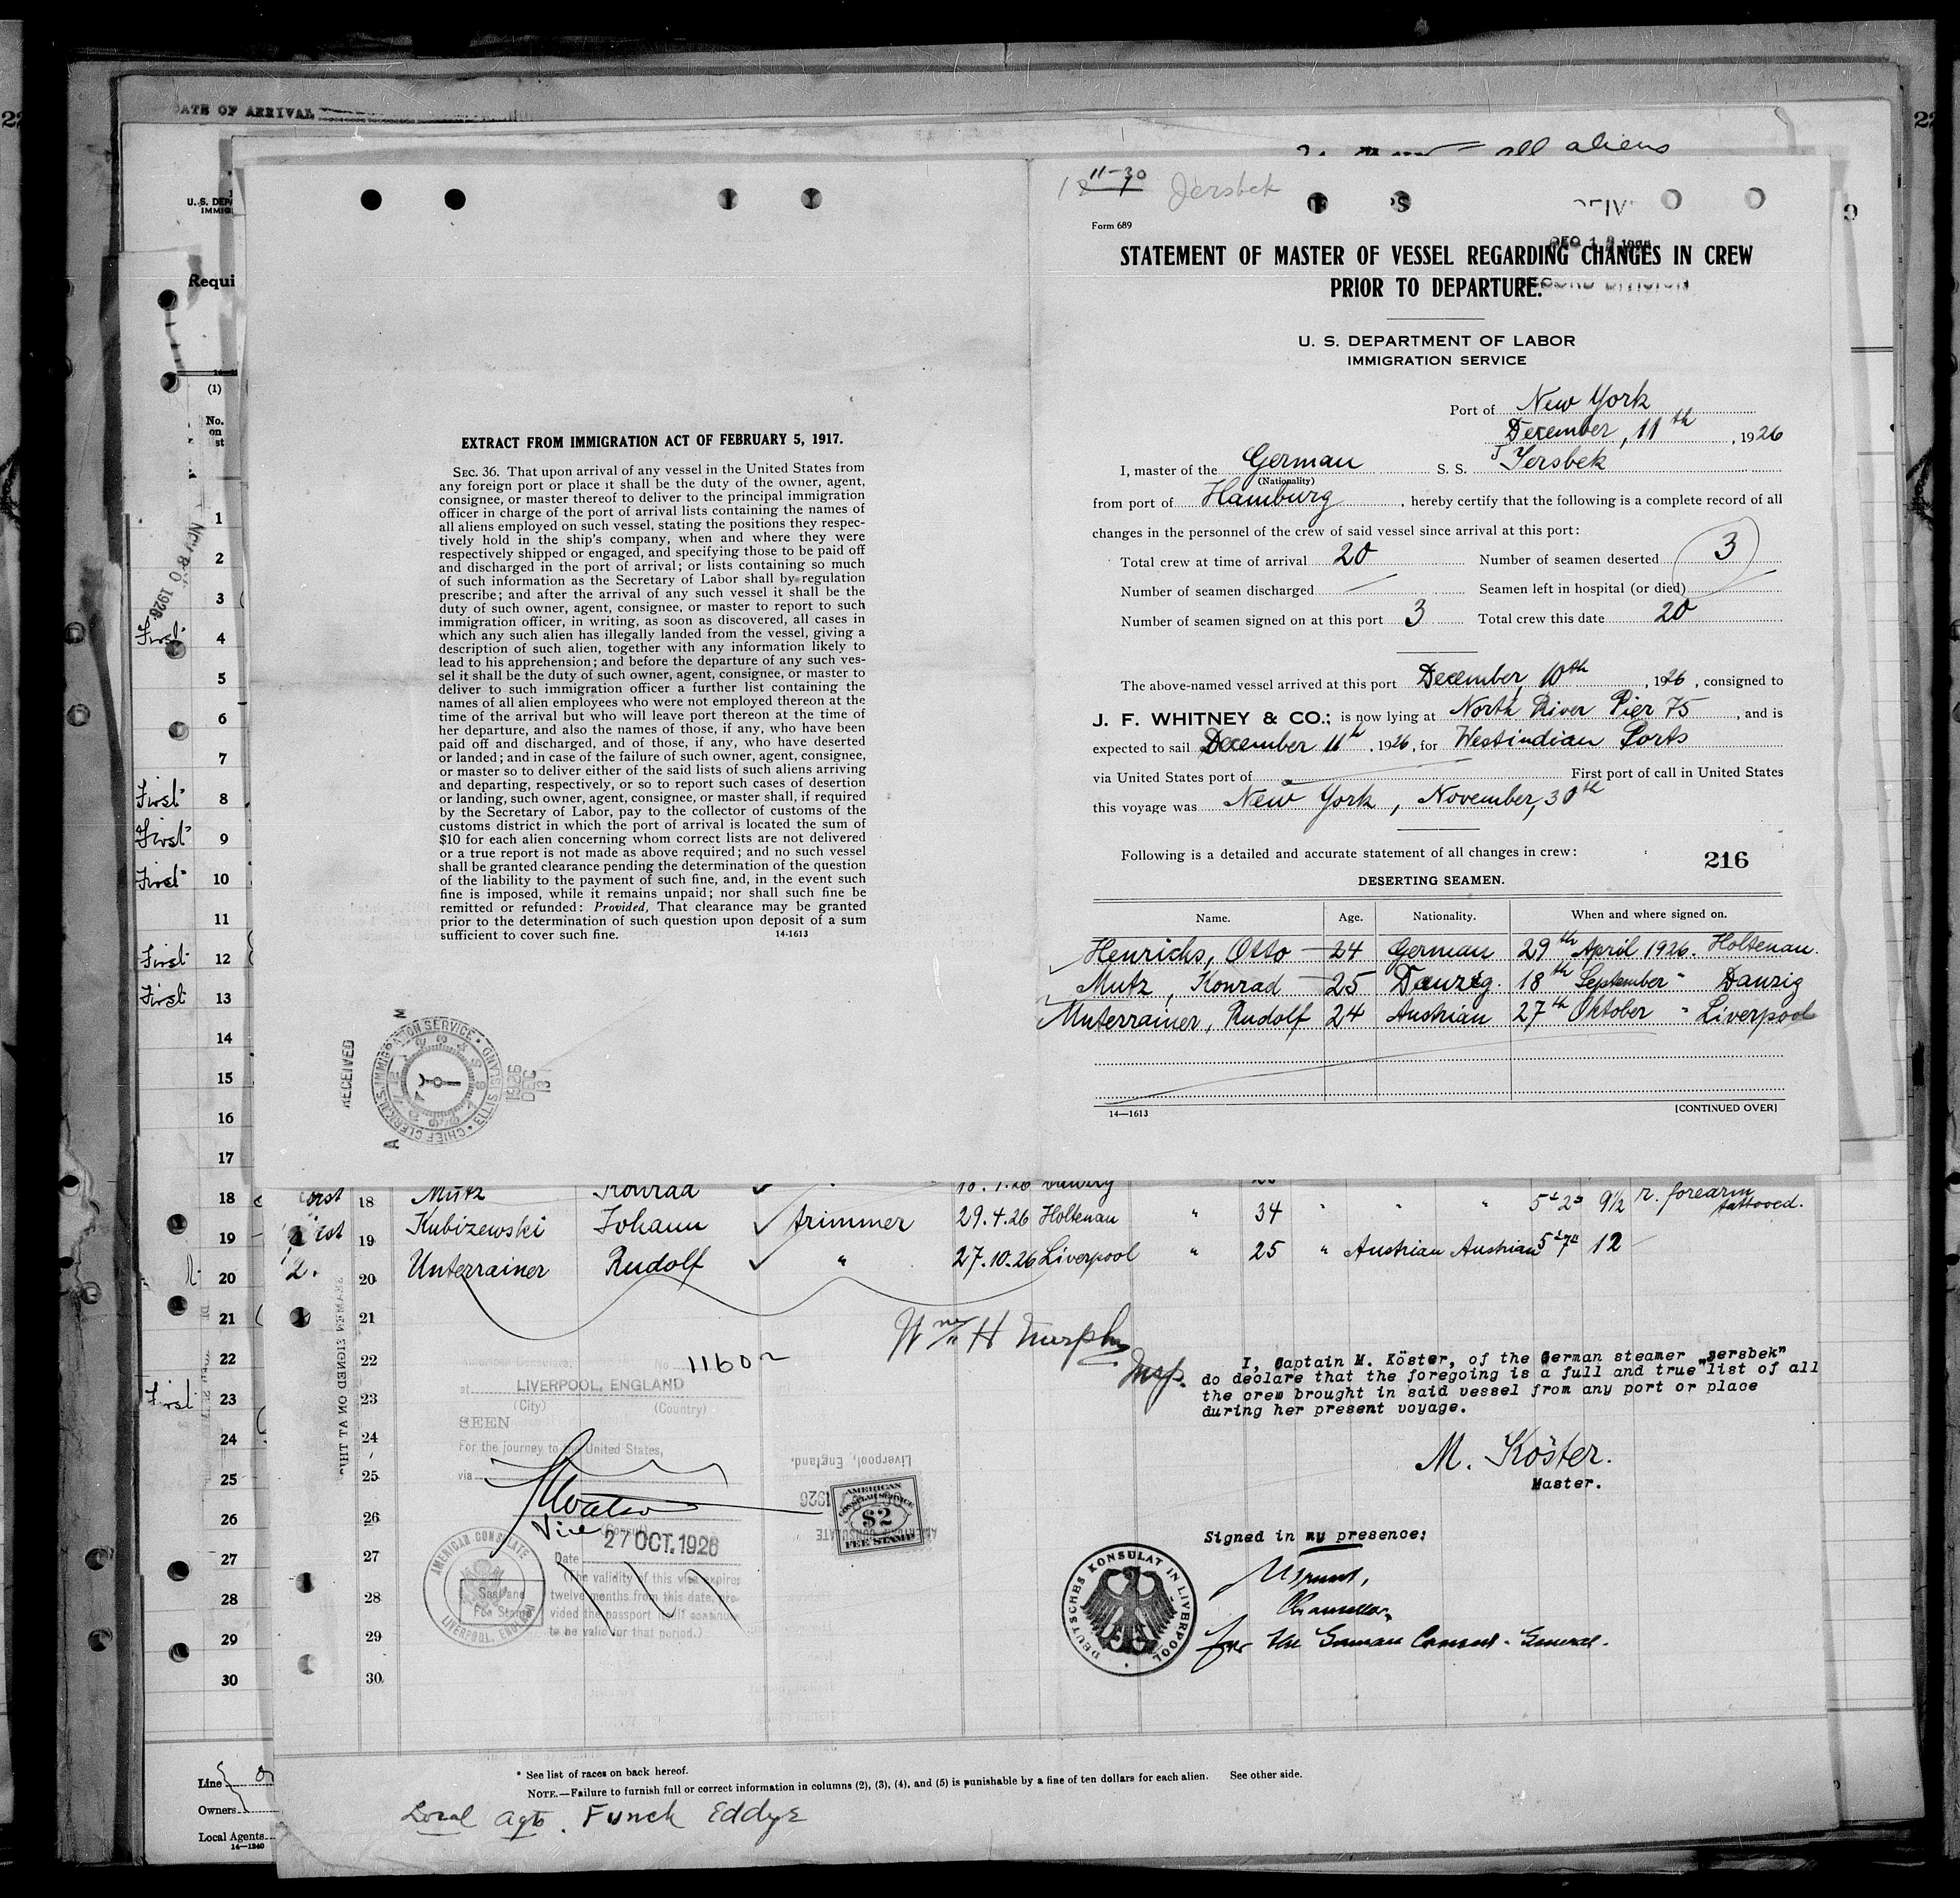 DATE OF ARRIVAL
all aliens
11-30
Jersbek
Form 689
DEC 1 1926
STATEMENT OF MASTER OF VESSEL REGARDING CHANGES IN CREW
PRIOR TO DEPARTURE.
U. S. DEPARTMENT OF LABOR
IMMIGRATION SERVICE
Port of New York
December, 11th, 1926
I, master of the German S. S. Jersbek
(Nationality)
from port of Hamburg, hereby certify that the following is a complete record of all
changes in the personnel of the crew of said vessel since arrival at this port:
Total crew at time of arrival 20 Number of seamen deserted 3
Number of seamen discharged — Seamen left in hospital (or died)
Number of seamen signed on at this port 3 Total crew this date 20
The above-named vessel arrived at this port December, 10th, 1926, consigned to
J. F. WHITNEY & CO.; is now lying at North River Pier 75, and is
expected to sail December 11th, 1926, for Westindian Ports
via United States port of First port of call in United States
this voyage was New York, November, 30th
Following is a detailed and accurate statement of all changes in crew:
216
DESERTING SEAMEN.
Name. Age. Nationality. When and where signed on.
Henrichs, Otto — 24 German 29th April 1926. Holtenau.
Mutz, Konrad — 25 Danzig. 18th September " Danzig
Unterrainer, Rudolf 24 Austrian 27th Oktober " Liverpool
14—1613
[CONTINUED OVER]
EXTRACT FROM IMMIGRATION ACT OF FEBRUARY 5, 1917.
SEC. 36. That upon arrival of any vessel in the United States from
any foreign port or place it shall be the duty of the owner, agent,
consignee, or master thereof to deliver to the principal immigration
officer in charge of the port of arrival lists containing the names of
all aliens employed on such vessel, stating the positions they respec-
tively hold in the ship's company, when and where they were
respectively shipped or engaged, and specifying those to be paid off
and discharged in the port of arrival; or lists containing so much
of such information as the Secretary of Labor shall by regulation
prescribe; and after the arrival of any such vessel it shall be the
duty of such owner, agent, consignee, or master to report to such
immigration officer, in writing, as soon as discovered, all cases in
which any such alien has illegally landed from the vessel, giving a
description of such alien, together with any information likely to
lead to his apprehension; and before the departure of any such ves-
sel it shall be the duty of such owner, agent, consignee, or master to
deliver to such immigration officer a further list containing the
names of all alien employees who were not employed thereon at the
time of the arrival but who will leave port thereon at the time of
her departure, and also the names of those, if any, who have been
paid off and discharged, and of those, if any, who have deserted
or landed; and in case of the failure of such owner, agent, consignee,
or master so to deliver either of the said lists of such aliens arriving
and departing, respectively, or so to report such cases of desertion
or landing, such owner, agent, consignee, or master shall, if required
by the Secretary of Labor, pay to the collector of customs of the
customs district in which the port of arrival is located the sum of
$10 for each alien concerning whom correct lists are not delivered
or a true report is not made as above required; and no such vessel
shall be granted clearance pending the determination of the question
of the liability to the payment of such fine, and, in the event such
fine is imposed, while it remains unpaid; nor shall such fine be
remitted or refunded: Provided, That clearance may be granted
prior to the determination of such question upon deposit of a sum
sufficient to cover such fine.
14-1613
RECEIVED
CHIEF CLERK U.S. IMMIGRATION SERVICE ELLIS ISLAND
1926 DEC 13
U. S. DEP
IMMIG
Requi
(1)
No. on
1
2
3
First 4
5
6
7
First 8
First 9
First 10
11
First 12
First 13
14
15
16
17
18
19
20
21
22
First 23
24
25
26
27
28
29
30
18 Mutz Konrad
19 Kubizewski Johann trimmer 29.4.26 Holtenau " 34 " " " 5'2" 9½ r. forearm tattooed.
20 Unterrainer Rudolf " 27.10.26 Liverpool " 25 " Austrian Austrian 5'7" 12
21
22
23
24
25
26
27
28
29
30
Wm H Murphy
Insp.
No. 11602
at LIVERPOOL, ENGLAND
(City) (Country)
SEEN
For the journey to the United States,
via
Vice (Consul)
Date 27 OCT. 1926
(The validity of this visa expires
twelve months from this date, pro-
vided the passport itself continues
to be valid for that period.)
AMERICAN CONSULATE
LIVERPOOL, ENGLAND
Fee Stamp
Liverpool, England.
AMERICAN
CONSULAR SERVICE
$2
FEE STAMP
I, Captain M. Köster, of the German steamer "Jersbek"
do declare that the foregoing is a full and true list of all
the crew brought in said vessel from any port or place
during her present voyage.
M. Köster.
Master.
Signed in my presence:
Chancellor,
for the German Consul-General.
DEUTSCHES KONSULAT IN LIVERPOOL
* See list of races on back hereof.
NOTE.—Failure to furnish full or correct information in columns (2), (3), (4), and (5) is punishable by a fine of ten dollars for each alien. See other side.
Local Agts. Funch Eddye
Line
Owners
Local Agents
14—1240